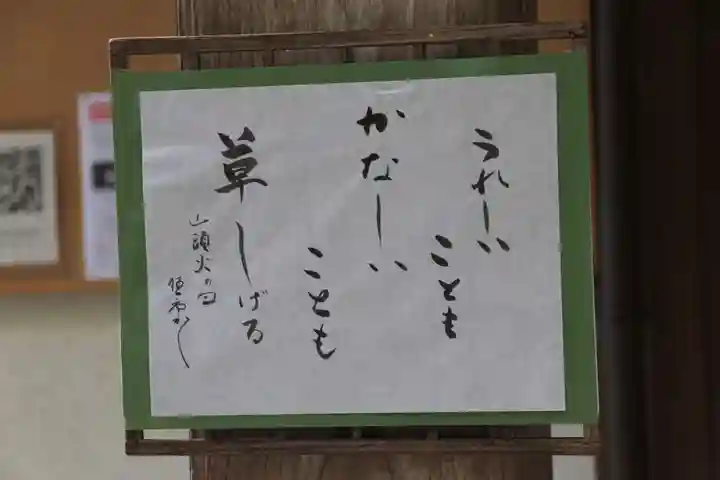 うれしい
こともも
かなしい
ことも
草しげる
山頭火の句